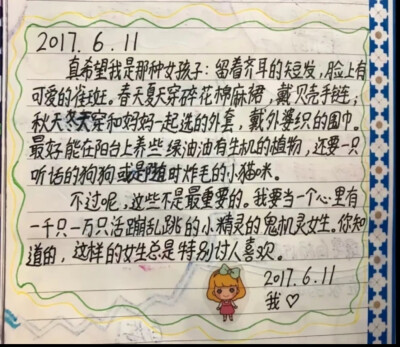 2017.6.11
真希望我是那种女孩子：留着齐耳的短发，脸上有
可爱的雀斑。春天夏天穿碎花棉麻裙，戴贝壳手链；
秋天冬天穿和妈妈一起选的外套，戴外婆织的围巾。
最好能在阳台上养些绿油油有生机的植物，还要一只
听话的狗狗或是随时炸毛的小猫咪。
不过呢，这些不是最重要的。我要当一个心里有
一千只一万只活蹦乱跳的小精灵的鬼机灵女生。你知
道的，这样的女生总是特别讨人喜欢。
2017.6.11
我♡